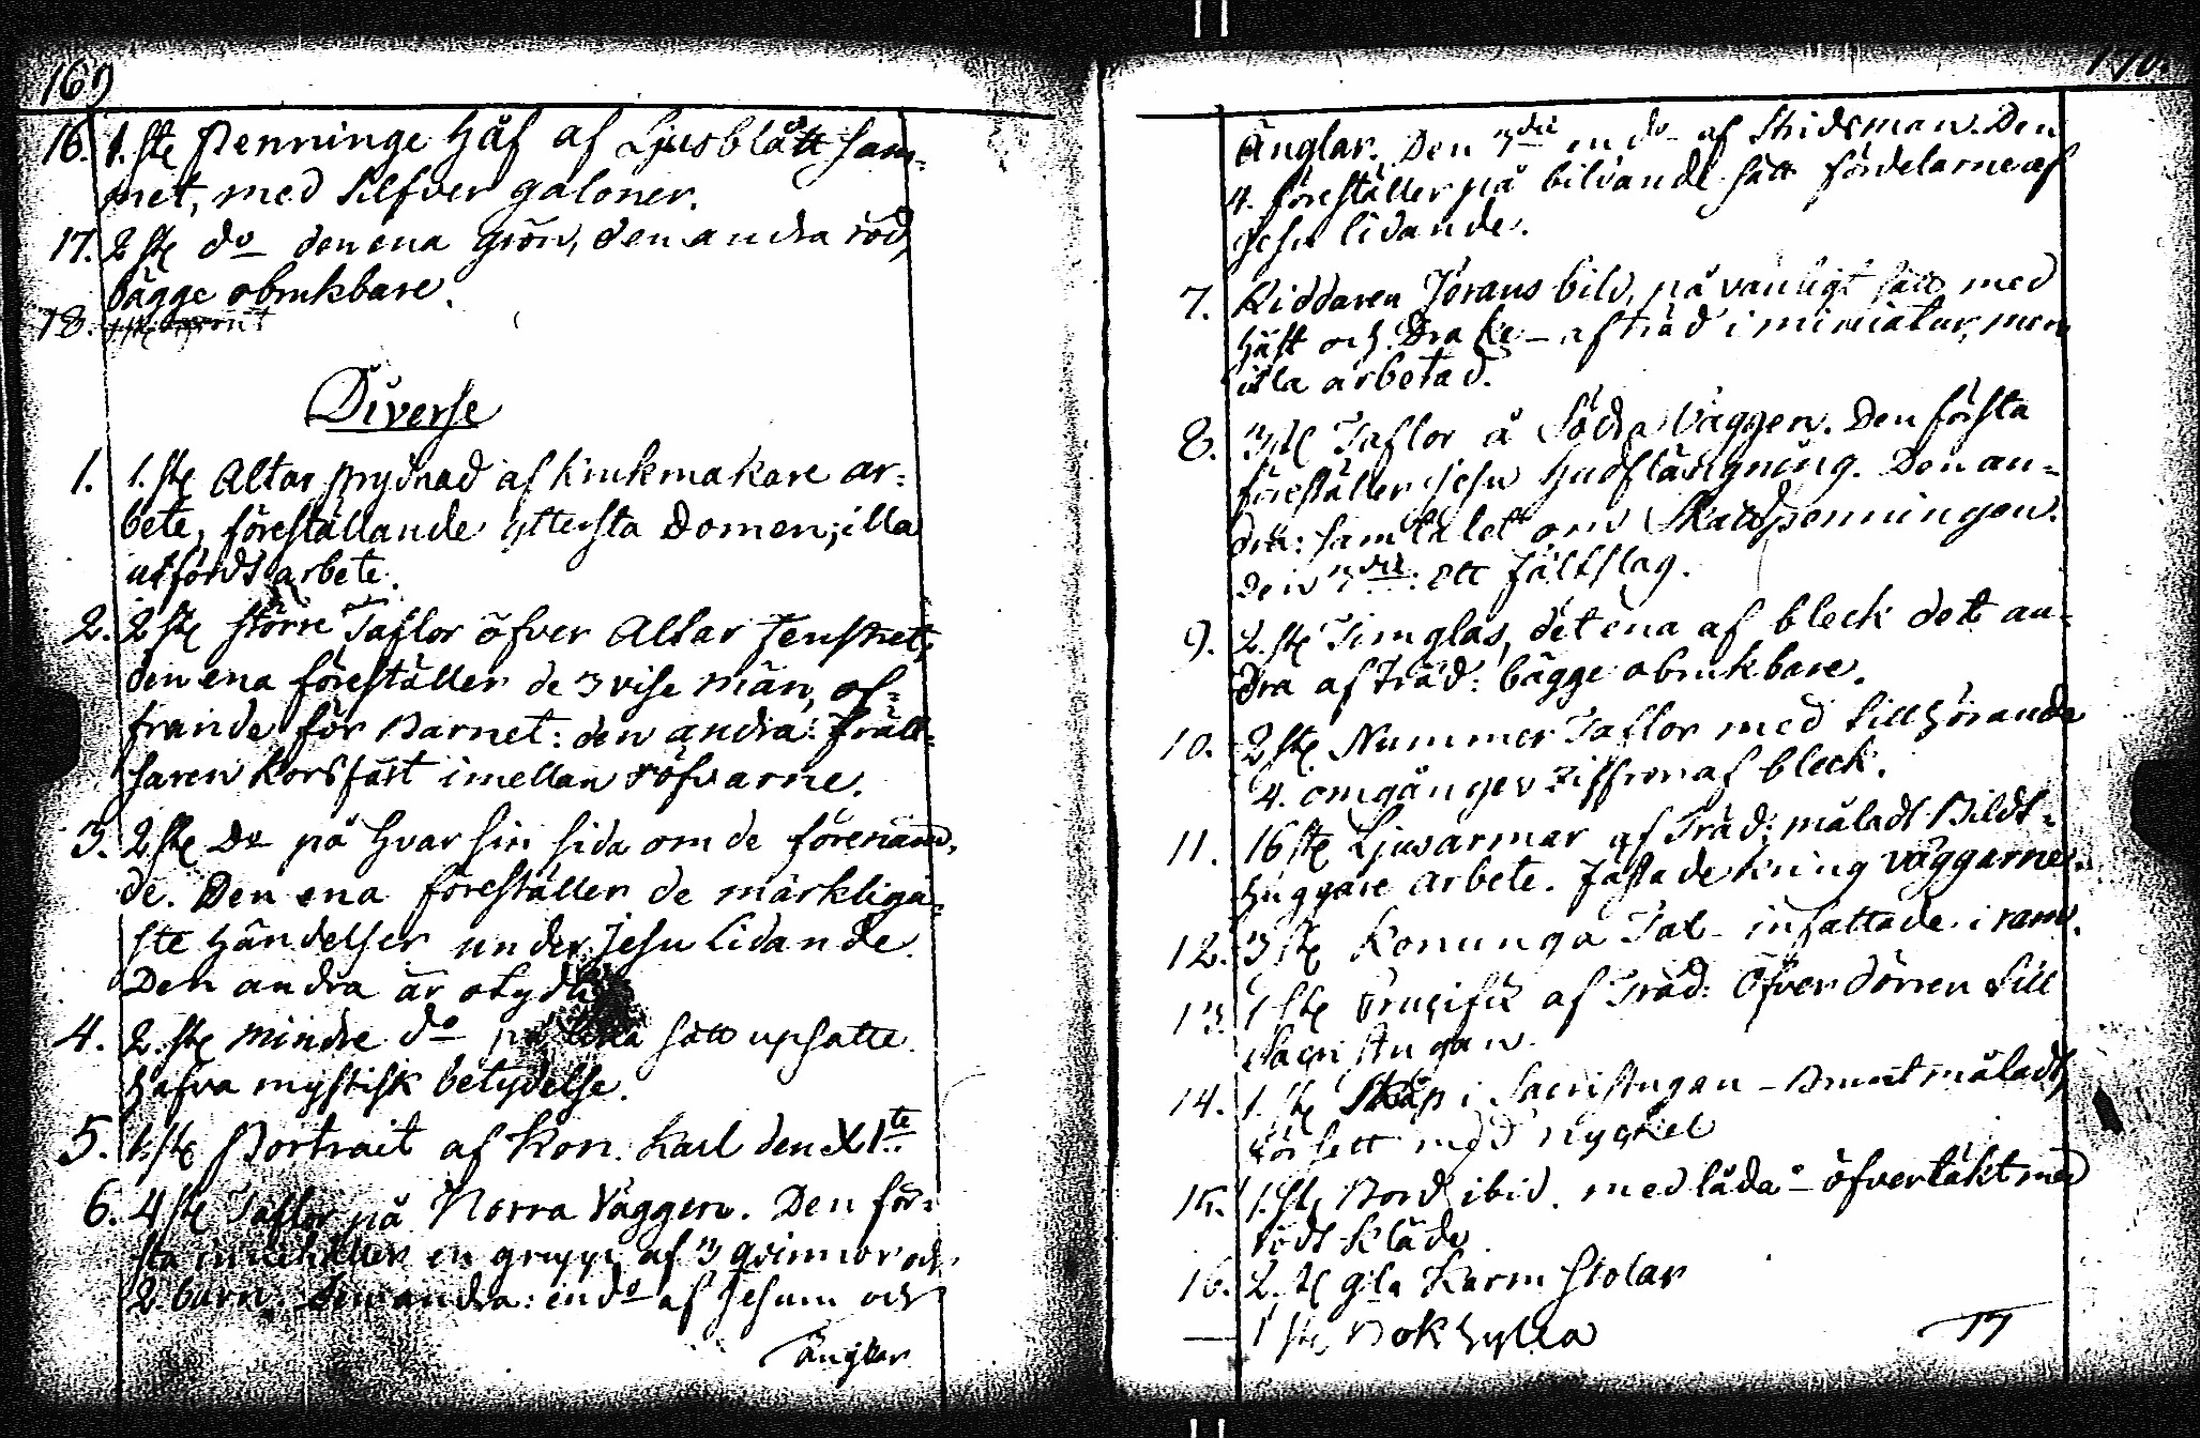 169
16. 1. st Penninge Håf af Ljusblått sam-
met, med Silfver galoner.
17. 2 st do den ena grön, den andra röd,
bägge obrukbare.
18.
Diverse
1. 1. st Altar prydnad af Krukmakare ar-
bete, föreställande yttersta Domen; illa
utfördt arbete.
2. 2 st större Taflor öfver Altar Fenstret;
den ena föreställer de 3 vise Män, of-
frande för Barnet: den andra: Fräll-
saren Korsfäst imellan röfvarne.
3. 2 st Do på hvar sin sida om de förenämn-
de. Den ena föreställer de märkliga-
ste händelser under Jesu Lidande.
Den andra är otydlig
4. 2. st Mindre do på lika sätt upsatte.
hafva mystisk betydelse.
5. 1. st Portrait af Kon. Karl den XIte
6. 4 st Taflor på Norra Väggen. Den för-
sta innehåller en grupp af 3 qvinnor och
2. barn. Den andra: en do af Jesum och
Änglar
170.
Änglar. Den 3die en do af Stridsman. Den
4. föreställer på bildande sätt fördelarne af
Jesu lidande.
7. Riddaren Jörans bild, på vanligt sätt med
häst och Drake - af träd i miniatur, men
illa arbetad.
8. 3 st Taflor å Södra Väggen. Den första
föreställer Jesu Hudflängning. Den an-
dra: samtalet om Skattpenningen.
Den 3die: Ett fältslag.
9. 2. st Timglas, det ena af bleck det an-
dra af träd: bägge obrukbare.
10. 2 st Nummer Taflor med tillhörande
4. omgånger Ziffror af bleck.
11. 16 st Ljusarmar af Träd: måladt Bildt-
huggare arbete. Fästade kring väggarne.
12. 3 st Konunga Tal - infattade i ram.
13. 1 st Crucifix af Träd: Öfver dörren till
Sacristugan.
14. 1. st Skåp i Sacristugan - Brunt måladt,
försett med nyckel
15. 1. st Bord ibid. med låda - öfvertäkt med
rödt Kläde
16. 2. st gla Karm Stolar
— 1 st Bokhylla
17